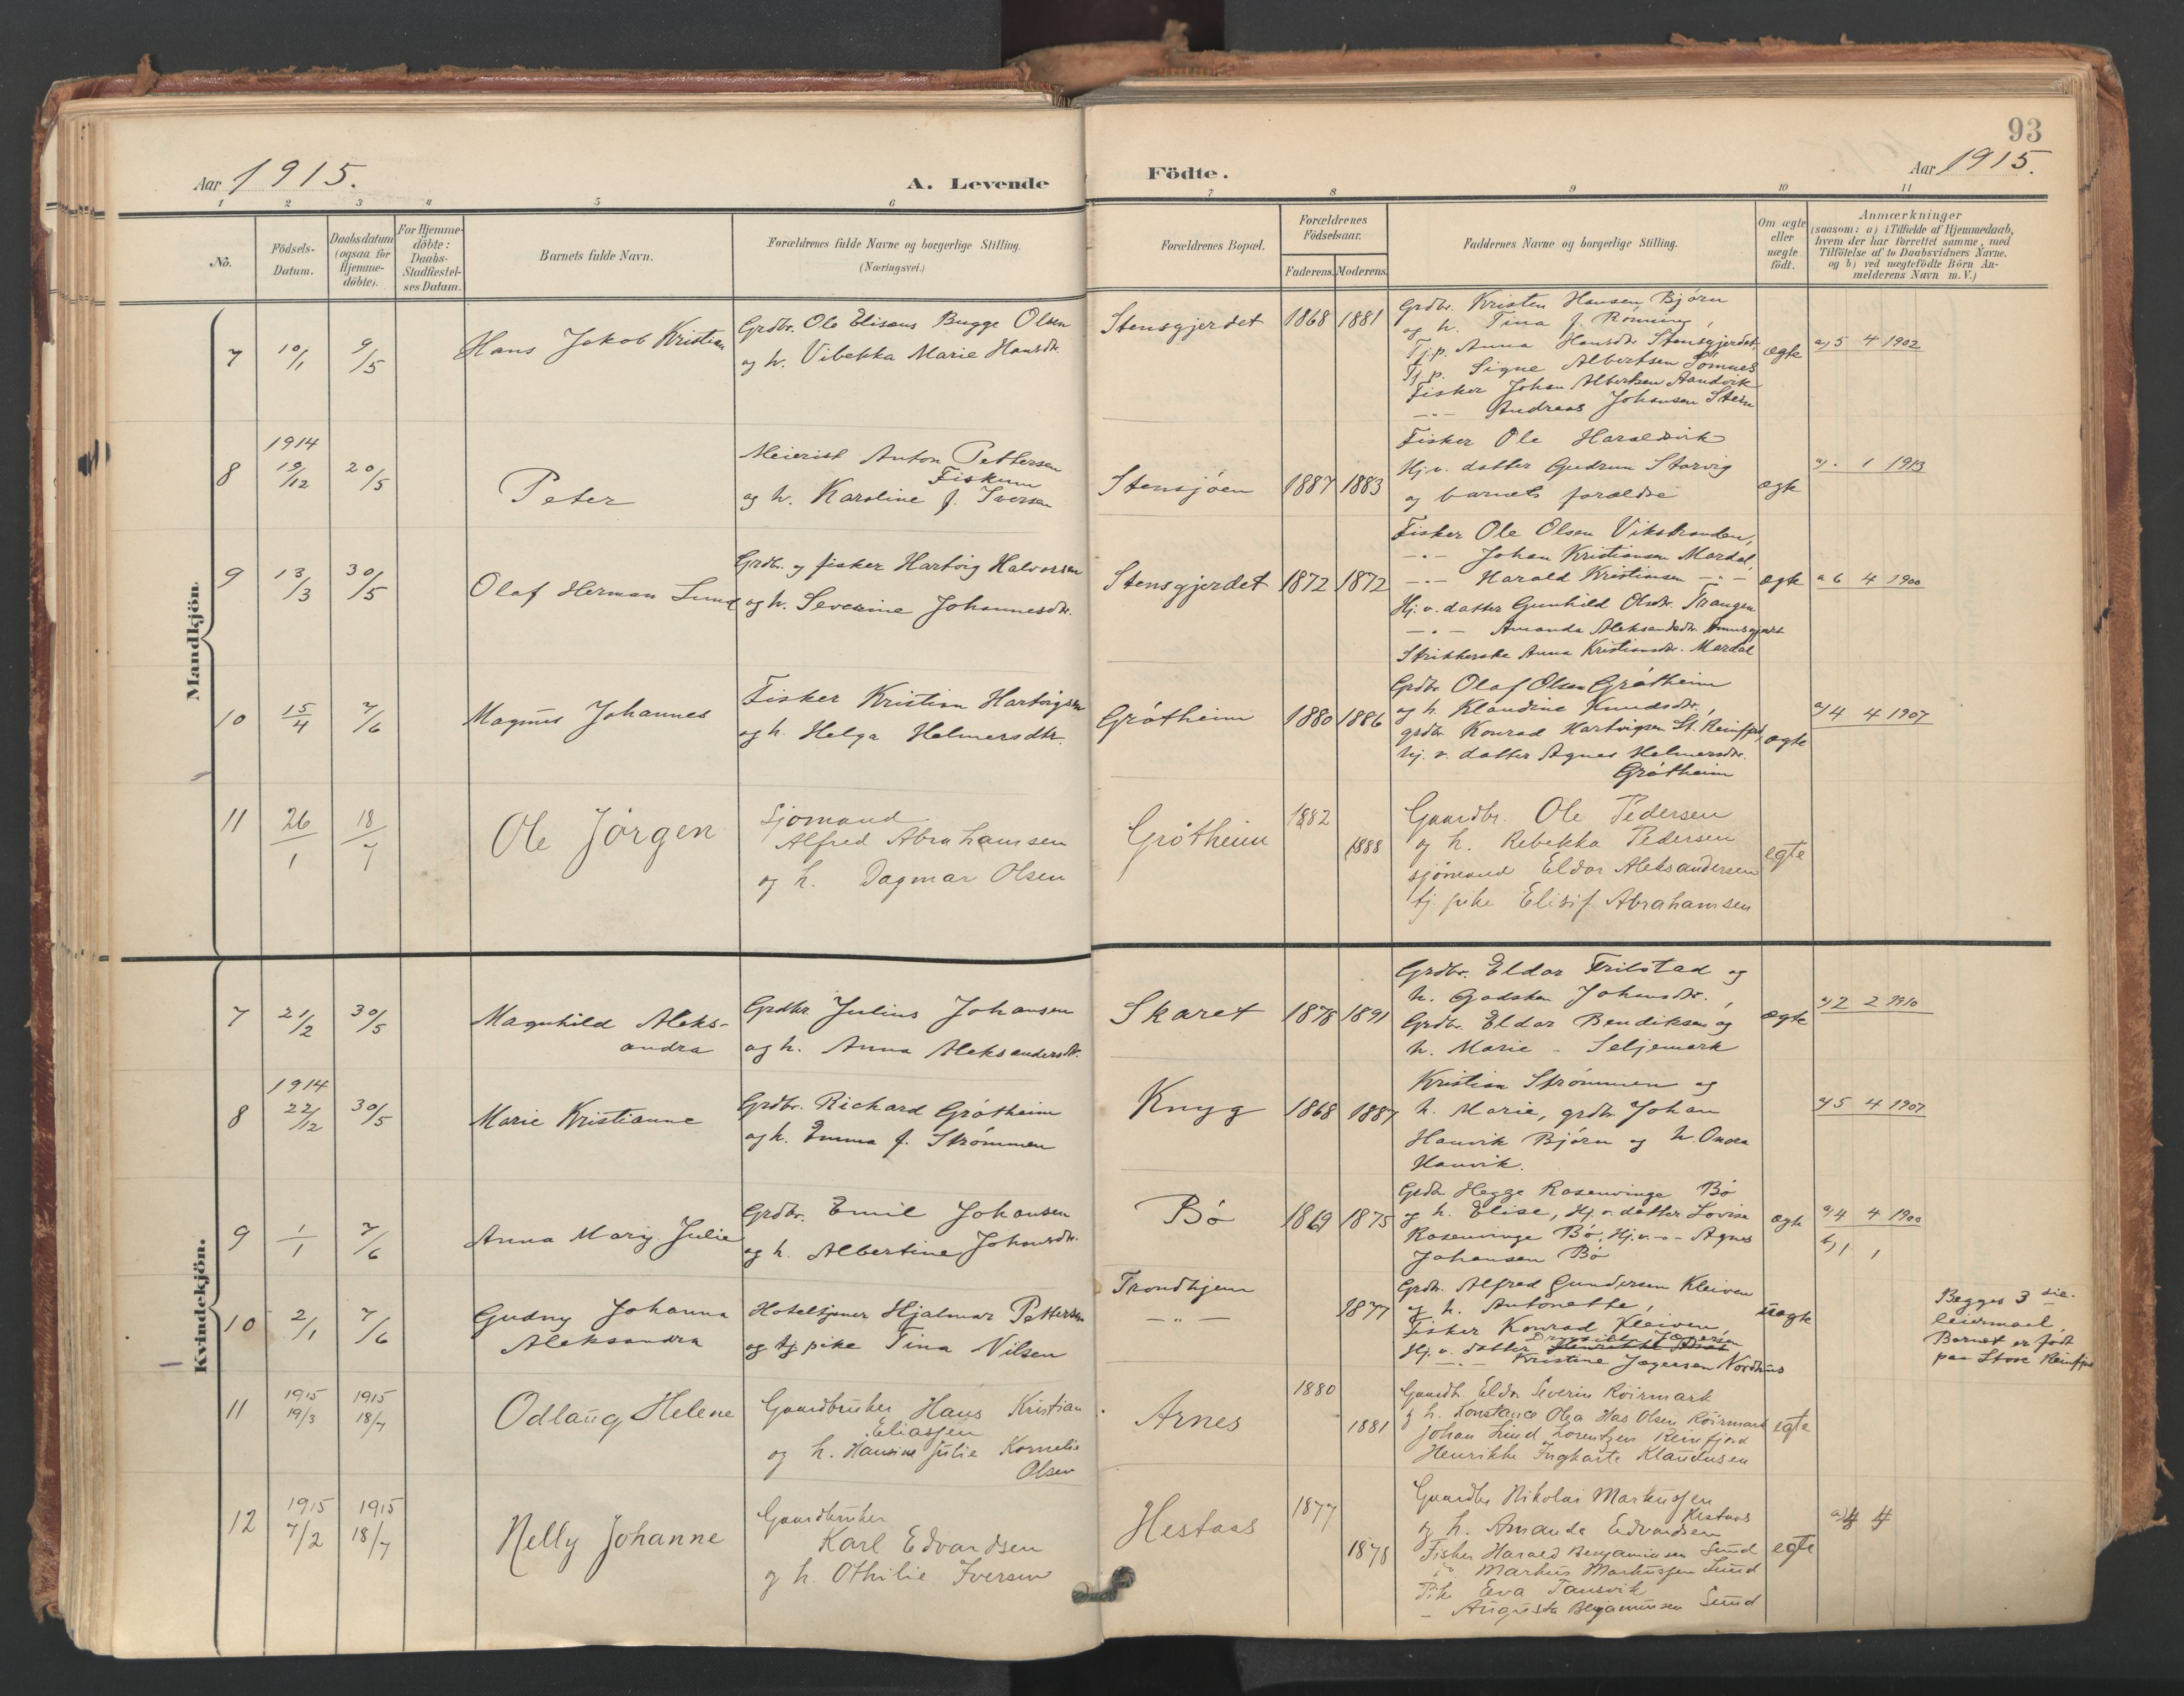 93
Aar 1915.
A. Levende
Födte.
Aar 1915.
1 2 3 4 5 6 7 8 9 10 11
No.
Födsels-
Datum.
Daabsdatum
(ogsaa for
Hjemme-
döbte).
For Hjemme-
döbte:
Daabs-
Stadfæstel-
ses Datum.
Barnets fulde Navn.
Forældrenes fulde Navne og borgerlige Stilling.
(Næringsvei.)
Forældrenes Bopæl.
Forældrenes
Födselsaar.
Faderens. Moderens.
Faddernes Navne og borgerlige Stilling.
Om ægte
eller
uægte
födt.
Anmærkninger
(saasom: a) i Tilfælde af Hjemmedaab,
hvem der har forrettet samme, med
Tilföielse af to Daabsvidners Navne.
og b) ved uægtefödte Börn An-
melderens Navn m. V.)
Mandkjön.
7 10/1 9/5
Hans Jakob Kristian
Grdbr. Ole Elisæus Bugge Olsen
og h. Vibekka Marie Hansdtr.
Stensgjerdet 1868 1881
Grdbr. Kristen Hansen Bjørn
og h. Tina f. Rønning,
Tj.p. Anna Hansdtr. Stensgjerdet.
Tj.p. Signe Albertsen Sømnes
Fisker Johan Albertsen Aandvik
-"- Andreas Johansen Stein
ægte
a) 5 4 1902
8 1914 19/12 20/5
Peter
Meierist Anton Pettersen
Fiskum
og h. Karoline f. Iversen
Stensjøen 1887 1883
Fisker Ole Haraldsvik
Hj.v. datter Gudrun Storvig
og barnets forældre
ægte
a) - 1 1913
9 13/3 30/5
Olaf Herman Lund
Grdbr. og fisker Hartvig Halvorsen
og h. Severine Johannesdtr.
Stensgjerdet 1872 1872
Fisker Ole Olsen Vikstranden,
-"- Johan Kristiansen Mardal,
-"- Harald Kristiansen -"-
Hj.v. datter Gunhild Olsdtr. Trangen
-"- Amanda Aleksandersdtr.
Strikkerske Anna Kristiansdtr. Mardal
ægte
a 6 4 1900
10 15/4 7/6
Magnus Johannes
Fisker Kristian Hartvigsen
og h. Helga Helmersdtr.
Grøtheim 1880 1886
Grdbr. Olaf Olsen Grøtheim
og h. Klaudine Knudsdtr.,
grdbr. Konrad Hartvigsen St. Reinfjord,
hj.v. datter Agnes Helmersdtr.
Grøtheim
ægte
a) 4 4 1907
11 26/1 18/7
Ole Jørgen
Sjømand
Alfred Abrahamsen
og h. Dagmar Olsen
Grøtheim 1882 1888
Gaardbr. Ole Pedersen
og h. Rebekka Pedersen
sjømand Eldor Aleksandersen
tj. pike Elisif Abrahamsen
egte
Kvindekjön.
7 21/2 30/5
Magnhild Aleks-
andra
Grdbr. Julius Johansen
og h. Anna Aleksandersdtr.
Skaret 1878 1891
Grdbr. Eldor Frilstad og
h. Godsken Johansdtr.,
Grdbr. Eldar Bendiksen og
h. Marie - Seljemark
ægte
a) 2 2 1910
8 1914 22/12 30/5
Marie Kristianne
Grdbr. Richard Grøtheim
og h. Emma f. Strømmen
Knyg 1868 1887
Kristian Strømmen og
h. Marie, grdbr. Johan
Hauvik Bjørn og h.
Hauvik.
a) 5 4 1907
9 1/1 7/6
Anna Marg. Julie
Grdbr. Emil Johansen
og h. Albertine Johansdtr.
Bø 1869 1875
Grdbr Hegge Rosenvinge Bø
og h. Elise, Hj.v. datter Lovise
Rosenvinge Bø, Hj.v. -"- Agnes
Johansen Bø
ægte
a) 4 4 1900
b) 1 1
10 2/1 7/6
Gudny Johanna
Aleksandra
Hoteltjener Hjalmar Pettersen
og tj. pike Tina Nilsen
Trondhjem
-"- 1877
Grdbr. Alfred Gundersen Kleiven
og h. Antonette,
Fisker Konrad Kleiven,
Hj.v. datter Jægersen
-"- Kristine Jægersen Nordhus
uægte
Begges 3die
leiermaal.
Barnet er født
paa Store Reinfjor
11 1915 19/3 1915 18/7
Odlaug Helene
Gaardbruker Hans Kristian
Eliassen
og h. Hansine Julie Kornelie
Olsen
Arnes 1880 1881
Gaardbr. Eldor Severin Røirmark
og h. Konstance Olea Has Olsen Røirmark
Johan Lind Lorentzen Reinfjord
Henrikke Ingharte Klaudusen
egte
12 1915 7/2 1915 18/7
Nelly Johanne
Gaardbruker
Karl Edvardsen
og h. Othilie Iversen
Hestaas 1877 1878
Gaardbr Nikolai Markussen
Hestaas
og h. Amanda Edvardsen
Fisker Harald Benjaminsen Sund
" Markus Markussen Sund
Pike Eva Tausvik
- Augusta Benjaminsen Sund
egte
a) 4 4